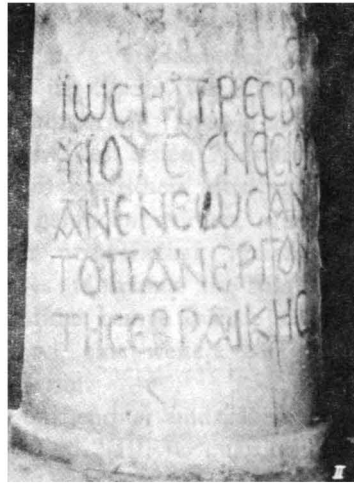 ΙΩCΗΠΡΕCΒ
ΥΙΟΥCΥΝΕCΙΟΥ
ΑΝΕΝΕΩCΑΝ
ΤΟΠΑΝΕΡΓΟΝ
ΤΗCΕΒΡΑΙΚΗC
II